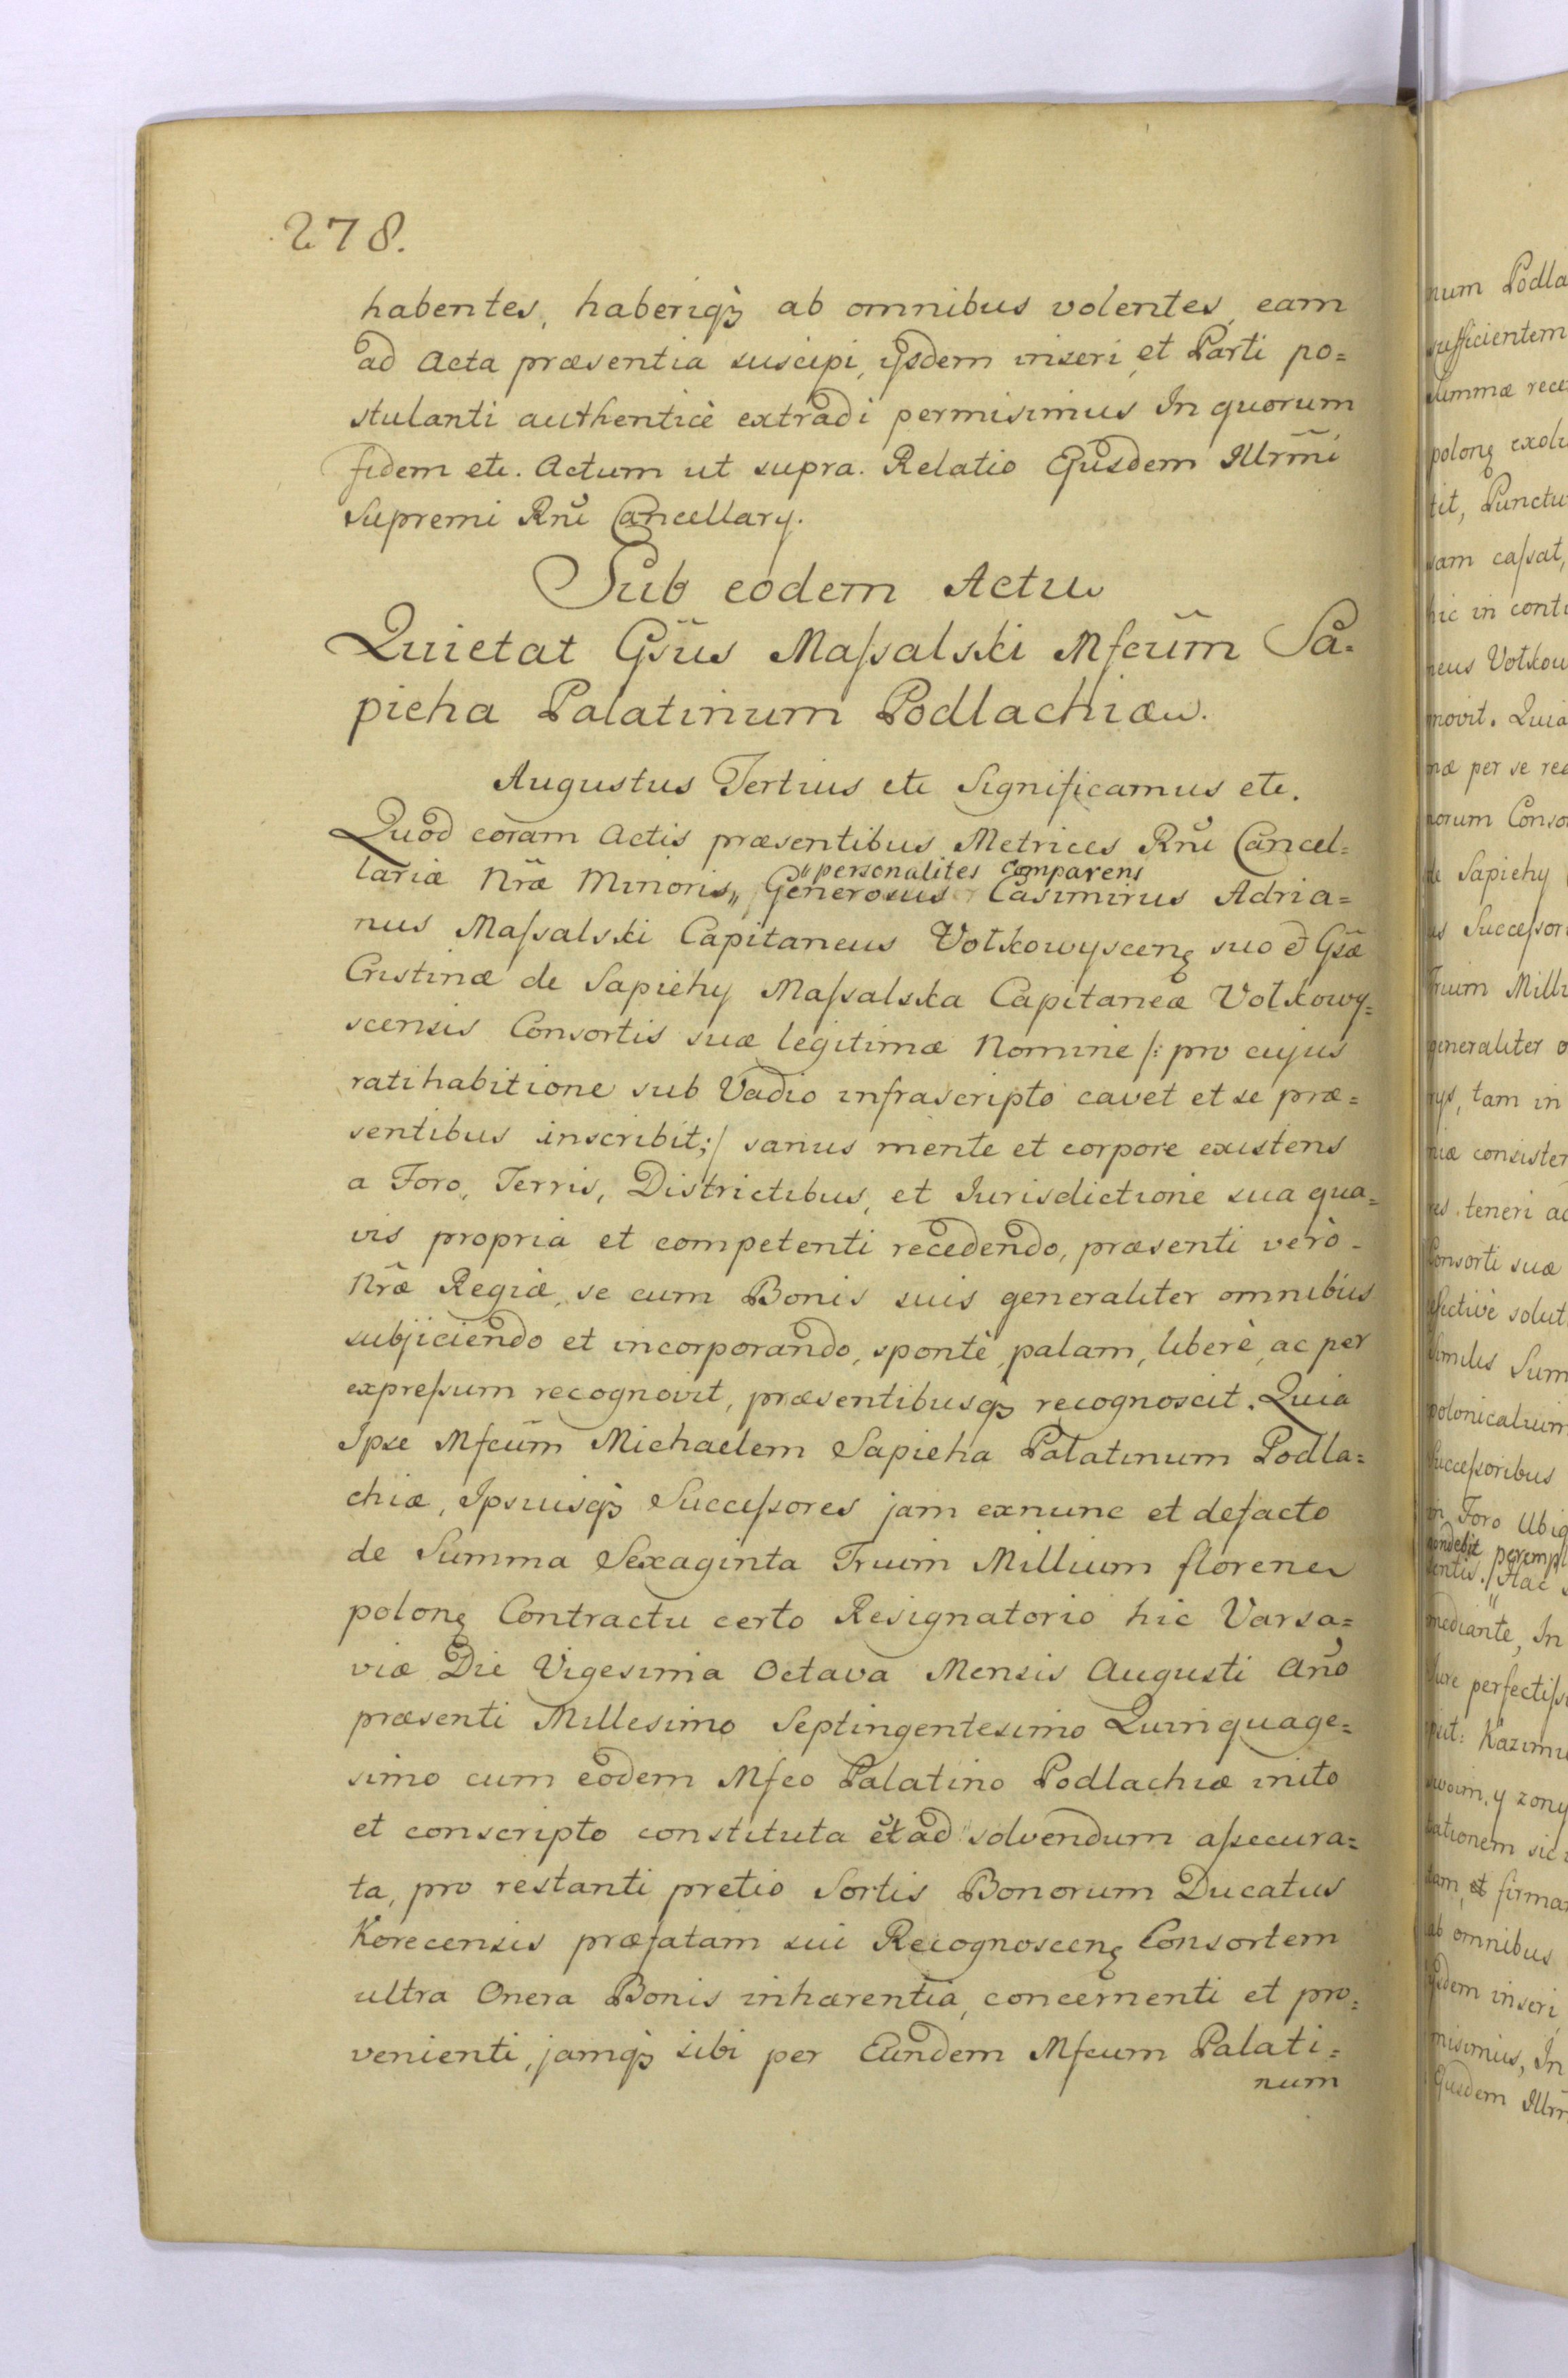 278.
habentes, haberiqꝫ ab omnibus volentes, eam
ad Acta præsentia suscipi, ijsdem inseri, et Parti po=
stulanti authenticè extradi permisimus In quorum
fidem etc. Actum ut supra. Relatio Ejusdem Illrm̃i
Supremi Rnĩ Cancellarÿ.
Sub eodem Actu
Quietat Gsũs Maſsalski Mfcũm Sa=
pieha Palatinum Podlachiæ.
Augustus Tertius etc Significamus etc.
Quod coram Actis præsentibus Metrices Rnĩ Cancel=
lariæ Nræ̃ Minoris „ Generosus Casimirus Adria=
„ personalites Comparens
nus Maſsalski Capitaneus Wołkowyscenꝫ suo et Gsæ̃
Cristinæ de Sapiehÿ Maſsalska Capitaneæ Wołkowy=
scensis Consortis suæ legitimæ Nomine /: pro cujus
ratihabitione sub Vadio infrascripto cavet et se præ=
sentibus inscribit; / sanus mente et corpore existens
a Foro, Terris, Districtibus, et Jurisdictione sua qua=
vis propria et competenti recedendo, præsenti verò
Nræ̃ Regiæ, se cum Bonis suis generaliter omnibus
subjiciendo et incorporando, spontè, palam, liberè, ac per
expreſsum recognovit, præsentibusqꝫ recognoscit. Quia
Ipse Mfcũm Michaelem Sapieha Palatinum Podla=
chiæ, Ipsuisqꝫ Succeſsores jam exnunc et defacto
de Summa Sexaginta Trium Millium florene
polonꝫ Contractu certo Resignatorio hic Varsa=
viæ Die Vigesima Octava Mensis Augusti Anõ
præsenti Millesimo Septingentesimo Quinquage=
simo cum eodem Mfco Palatino Podlachiæ inito
et conscripto constituta et ad solvendum aſsecura=
ta, pro restanti pretio Sortis Bonorum Ducatus
Korecensis præfatam sui Recognoscenꝫ Consortem
ultra Onera Bonis inhærentia, concernenti et pro=
venienti, jamqꝫ sibi per Eundem Mfcum Palati=
num